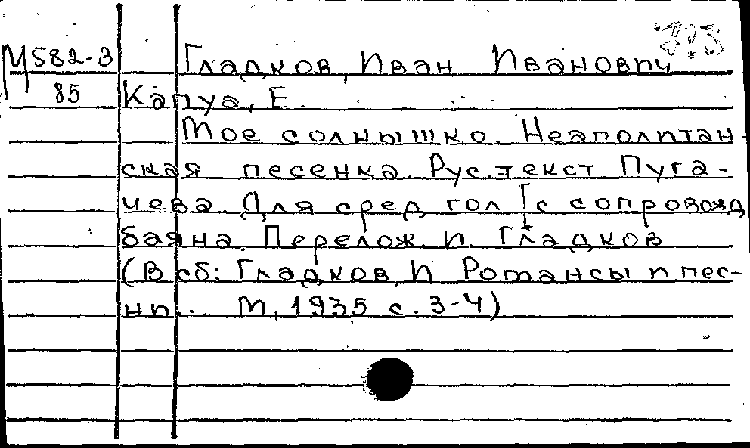 М582-3 Гладков, Иван Иванович
85 Капуа, Е.
Мое солнышко. Неаполитан-
ская песенка. Рус. текст Пуга-
чева. Для сред. гол. [с сопровожд.
баяна. Перелож. И. Гладков
(В сб: Гладков, И. Романсы и пес-
ни.. М, 1935 с. 3-4)